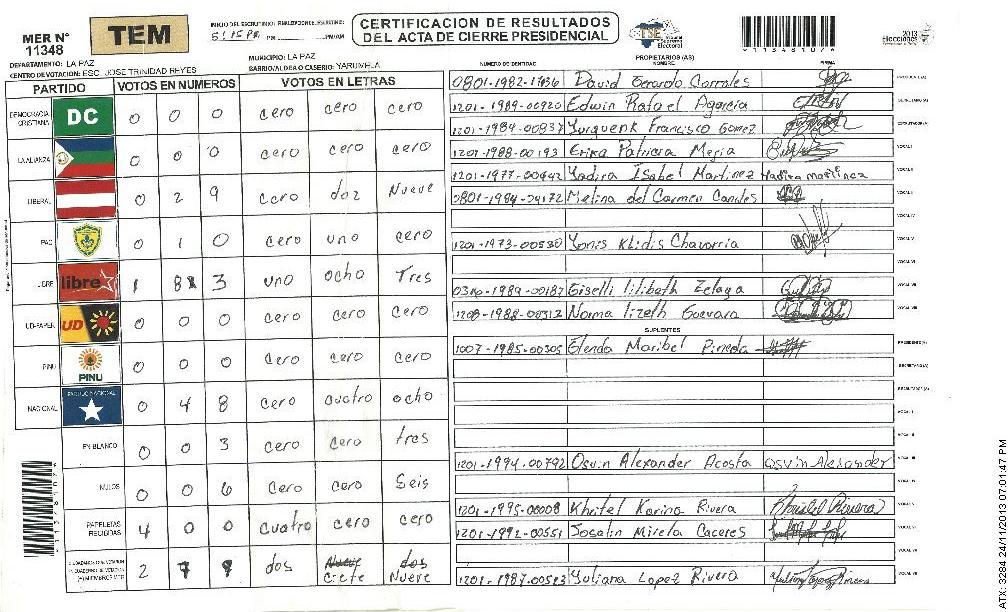 MER N° 11348
TEM
INICIO DEL ESCRUTINIO: FINALIZACION DEL ESCRUTINIO:
5:15 PM PM/AM
CERTIFICACION DE RESULTADOS
DEL ACTA DE CIERRE PRESIDENCIAL
TSE Tribunal Supremo Electoral
2013 Elecciones
DEPARTAMENTO: LA PAZ
MUNICIPIO: LA PAZ
CENTRO DE VOTACION: ESC. JOSE TRINIDAD REYES
BARRIO/ALDEA O CASERIO: YARUMELA
PARTIDO VOTOS EN NUMEROS VOTOS EN LETRAS
DEMOCRACIA CRISTIANA DC 0 0 0 cero cero cero
LA ALIANZA 0 0 0 cero cero cero
LIBERAL 0 2 9 cero dos Nueve
PAC 0 1 0 cero uno cero
LIBRE libre 1 8 3 uno ocho Tres
UD-FAPER UD 0 0 0 cero cero cero
PINU PINU 0 0 0 cero cero cero
NACIONAL PARTIDO NACIONAL 0 4 8 cero cuatro ocho
EN BLANCO 0 0 3 cero cero tres
NULOS 0 0 6 cero cero Seis
PAPELETAS RECIBIDAS 4 0 0 cuatro cero cero
2 7 9 dos Ciete Nueve
PROPIETARIOS (AS)
NUMERO DE IDENTIDAD NOMBRE FIRMA
David Gerardo Corrales PRESIDENTE(A)
1201-1989-00920 Edwin Rafael Agarcia SECRETARIO(A)
1201-1984-00837 Francisco Gomez ESCRUTADOR(A)
1201-1988-00193 Erika Patricia Mejia VOCAL I
1201-1977-00442 Yadira Isabel Martinez Yadira martinez VOCAL II
0801-1984-04172 Melina del Carmen Canales
VOCAL IV
1201-1973-00530 Yonis Klidis Chavarria VOCAL V
VOCAL VI
Giselli lilibeth Zelaya VOCAL VII
1208-1988-00313 Norma lizeth Guevara VOCAL VIII
SUPLENTES
1007-1985-00305 Glenda Maribel Pineda PRESIDENTE(A)
SECRETARIO(A)
ESCRUTADOR(A)
VOCAL I
VOCAL II
1201-1994-00792 Osvin Alexander Acosta Osvin Alexander VOCAL III
VOCAL IV
1201-1995-00008 Khritel Karina Rivera VOCAL V
1201-1992-00551 Josalin Mirela Caceres VOCAL VI
VOCAL VII
1201-1987-00523 Yuliana Lopez Rivera VOCAL VIII
ATX: 3284 24/11/2013 07:01:47 PM